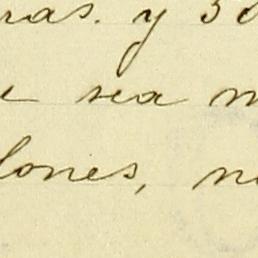 ras. y 30
sea
lones,